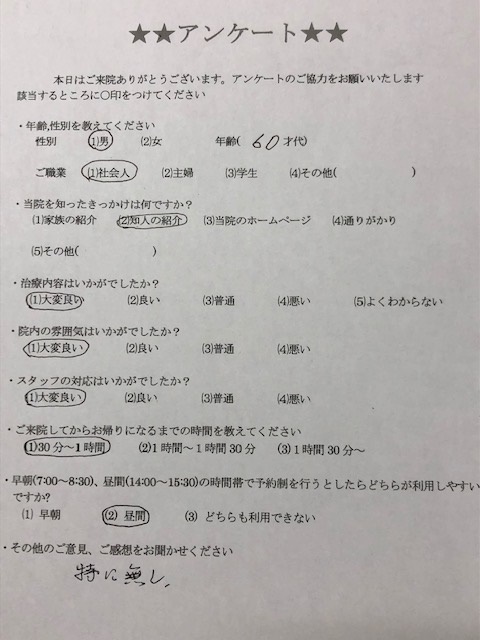 ★★アンケート★★
本日はご来院ありがとうございます。アンケートのご協力をお願いいたします
該当するところに〇印をつけてください
・年齢,性別を教えてください
性別 (1)男 (2)女 年齢( 60 才代)
ご職業 (1)社会人 (2)主婦 (3)学生 (4)その他( )
・当院を知ったきっかけは何ですか？
(1)家族の紹介 (2)知人の紹介 (3)当院のホームページ (4)通りがかり
(5)その他( )
・治療内容はいかがでしたか？
(1)大変良い (2)良い (3)普通 (4)悪い (5)よくわからない
・院内の雰囲気はいかがでしたか？
(1)大変良い (2)良い (3)普通 (4)悪い
・スタッフの対応はいかがでしたか？
(1)大変良い (2)良い (3)普通 (4)悪い
・ご来院してからお帰りになるまでの時間を教えてください
(1)30分〜1時間 (2)1時間〜1時間30分 (3)1時間30分〜
・早朝(7:00〜8:30)、昼間(14:00〜15:30)の時間帯で予約制を行うとしたらどちらが利用しやすい
ですか?
(1) 早朝 (2) 昼間 (3) どちらも利用できない
・その他のご意見、ご感想をお聞かせください
特に無し、